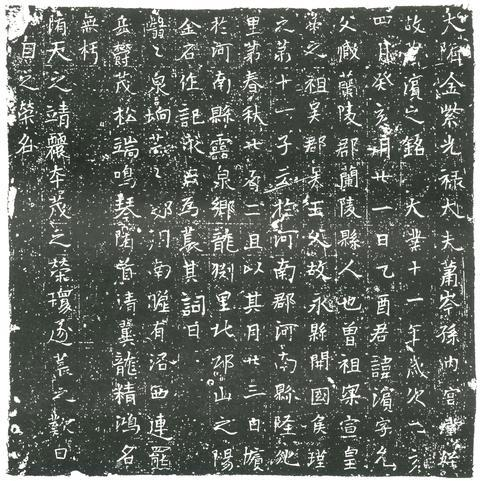 大隋金紫光祿大夫蕭岑孫內宮堂姪
故蕭濱之銘 大業十一年歲次乙亥
四月癸亥月廿一日乙酉君諱濱字允
父蘭陵郡蘭陵縣人也曾祖梁宣皇
帝之祖吳郡吳王父故永縣開國侯瑾
之第十一子立於河南郡河南縣隆化
里第春秋廿有二且以其月廿三日壙
於河南縣靈泉鄉龍里北邙山之陽
金石作記永去為其詞曰
泉坰芒邙河南瞻有洛西連
岳鬱茂松端鳴琴隴首清冀龍精鴻名
無朽
隋天之靖麗本茂之榮瓊荒之歎曰
目之榮名